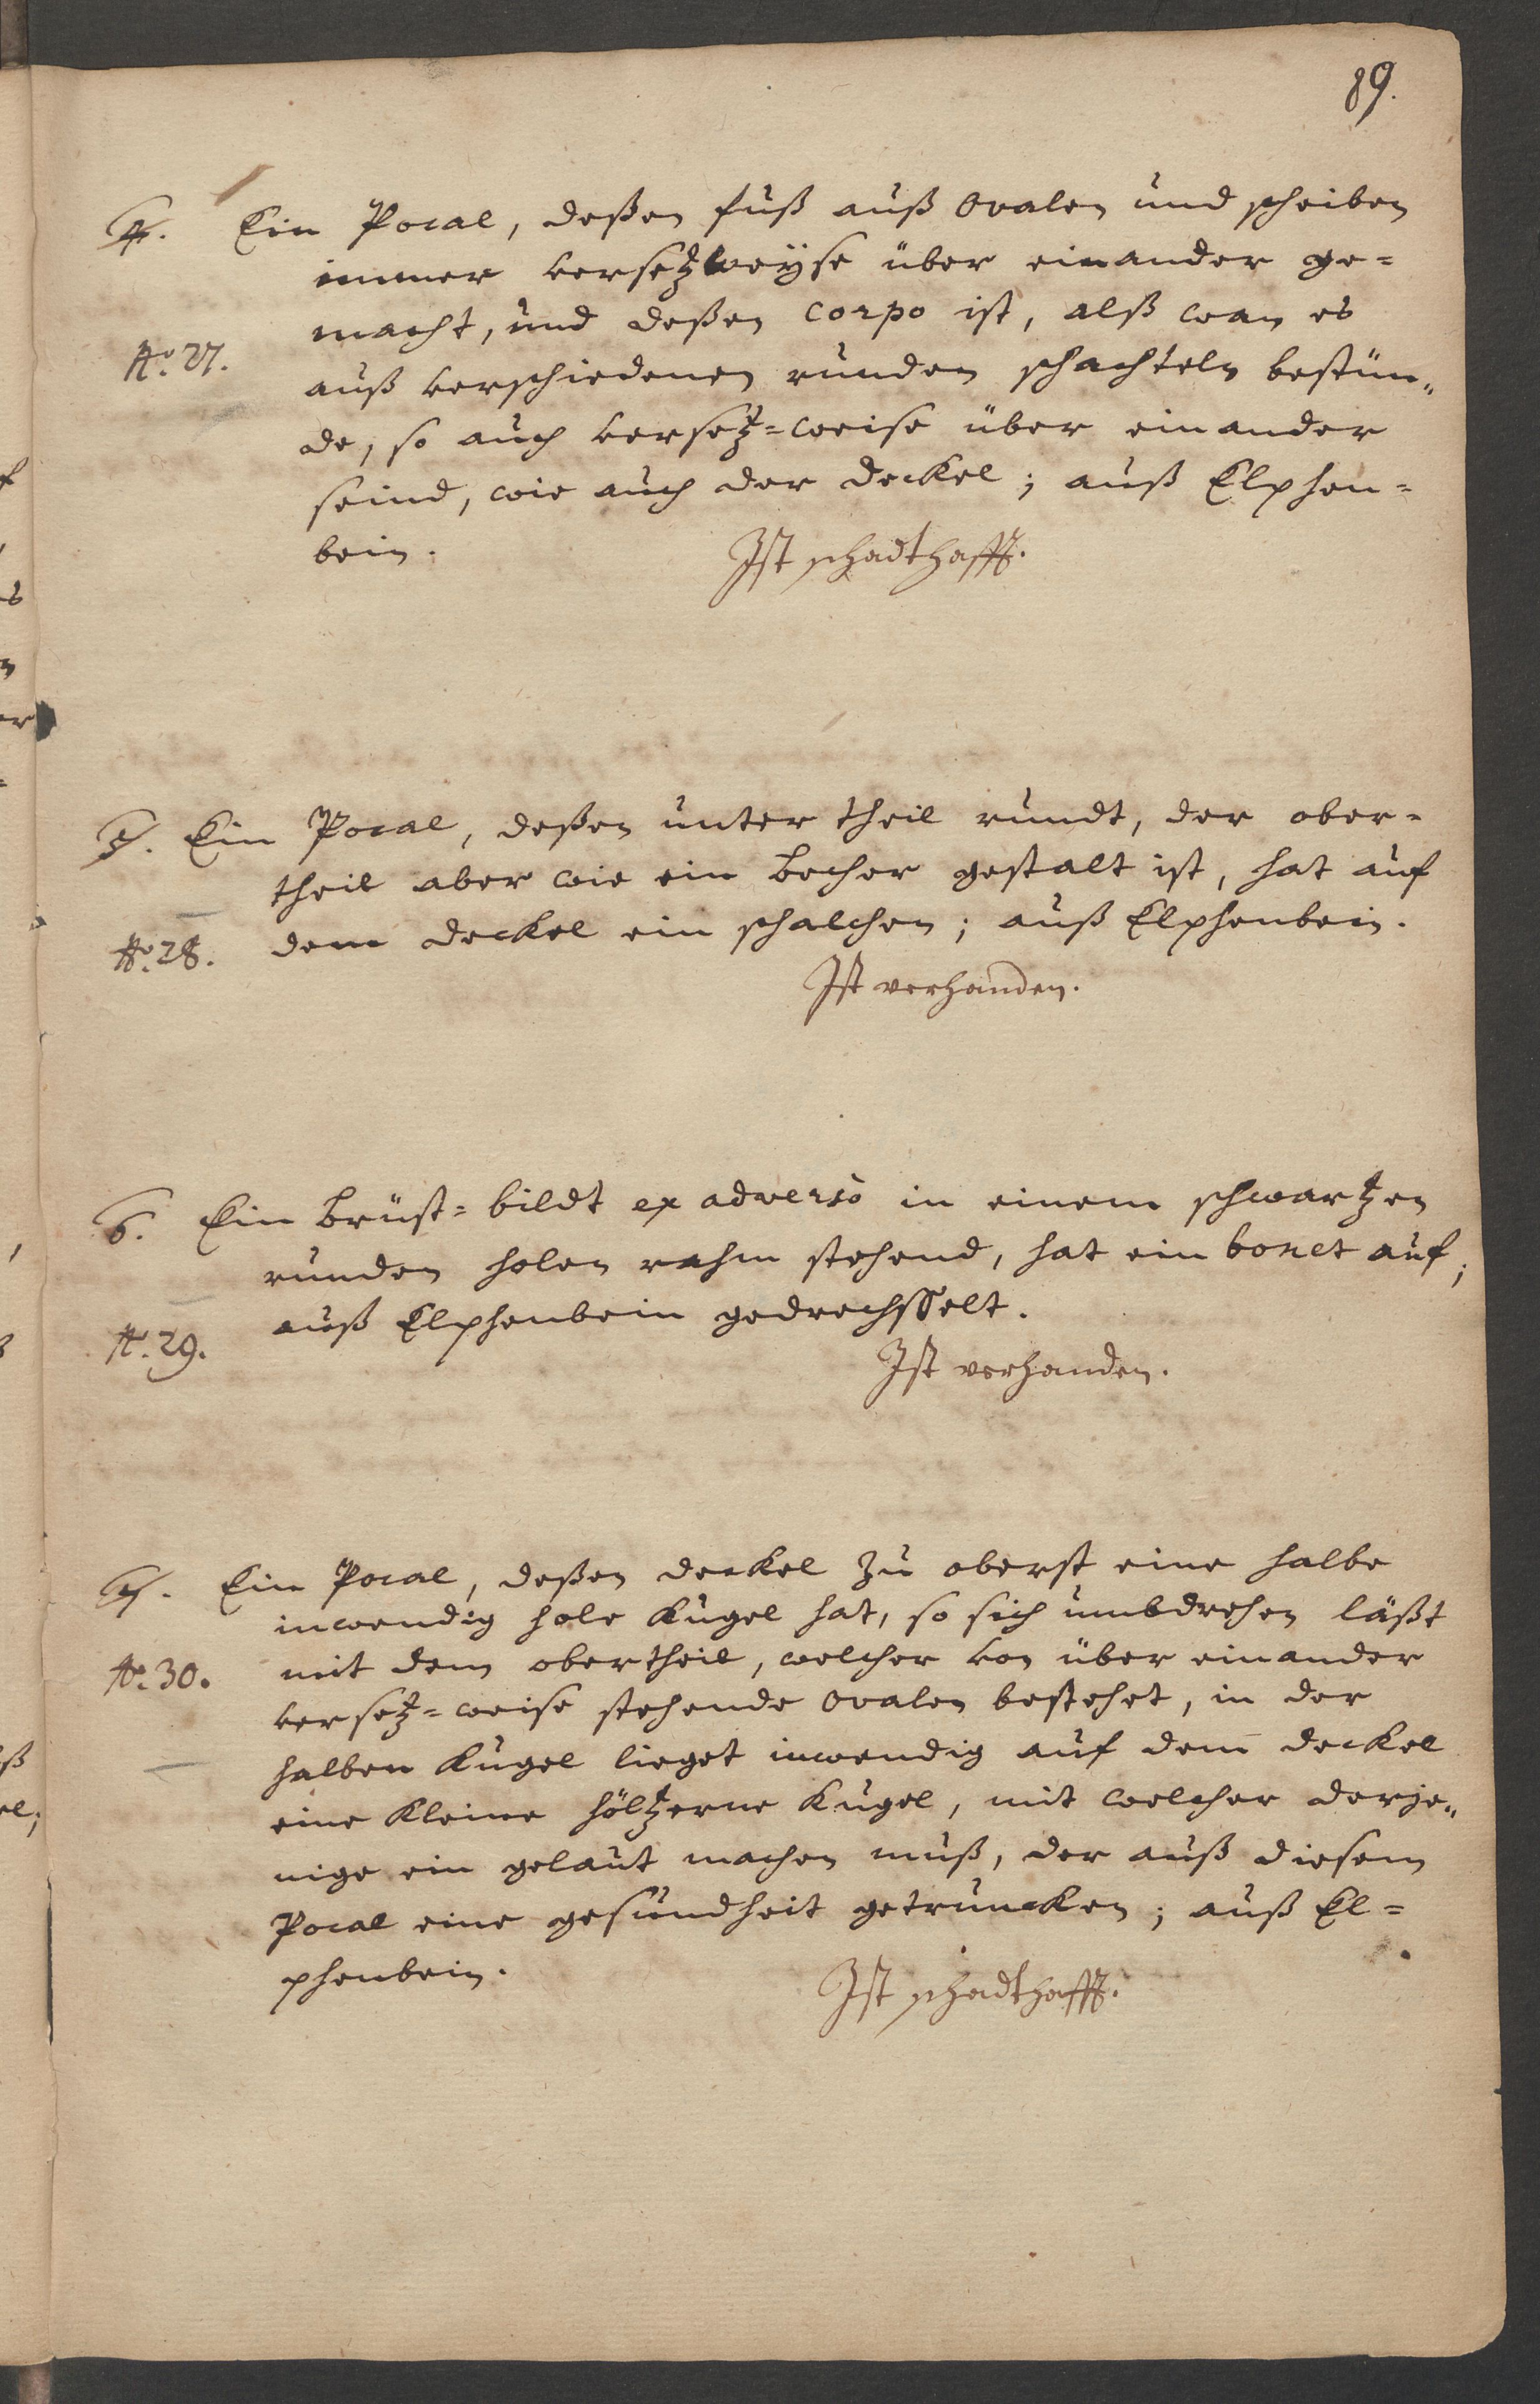 89.
4. Ein Pocal, deßen fuß auß Ovalen und scheiben
immer versetzweÿse über einander ge=
macht, und deßen corpo ist, alß wan es
No. 27.
auß verschiedenen runden schachteln bestün„
de, so auch versetz=weise über einander
seind, wie auch der deckel; auß Elphen=
bein. Ist schadthafft.
5. Ein Pocal, deßen unter theil rundt, der ober=
theil aber wie ein becher gestalt ist, hat auf
No. 28. dem deckel ein schalchen; auß Elphenbein.
Ist verhanden.
6. Ein brüst=bildt ex adverso in einem schwartzen
runden holen rahm stehend, hat ein bonet auf;
No. 29. auß Elphenbein gedrechsselt.
Ist verhanden.
7. Ein Pocal, deßen deckel zu oberst eine halbe
inwendig hole Kugel hat, so sich umbdrehen läßt
No. 30. mit dem obertheil, welcher von über einander
versetz=weise stehende Ovalen bestehet, in der
halben Kugel lieget inwendig auf dem deckel
eine kleine höltzerne Kugel, mit welcher derje„
nige ein gelaut machen muß, der auß diesem
Pocal eine gesundheit getruncken; auß El=
phenbein. Ist schadthafft.